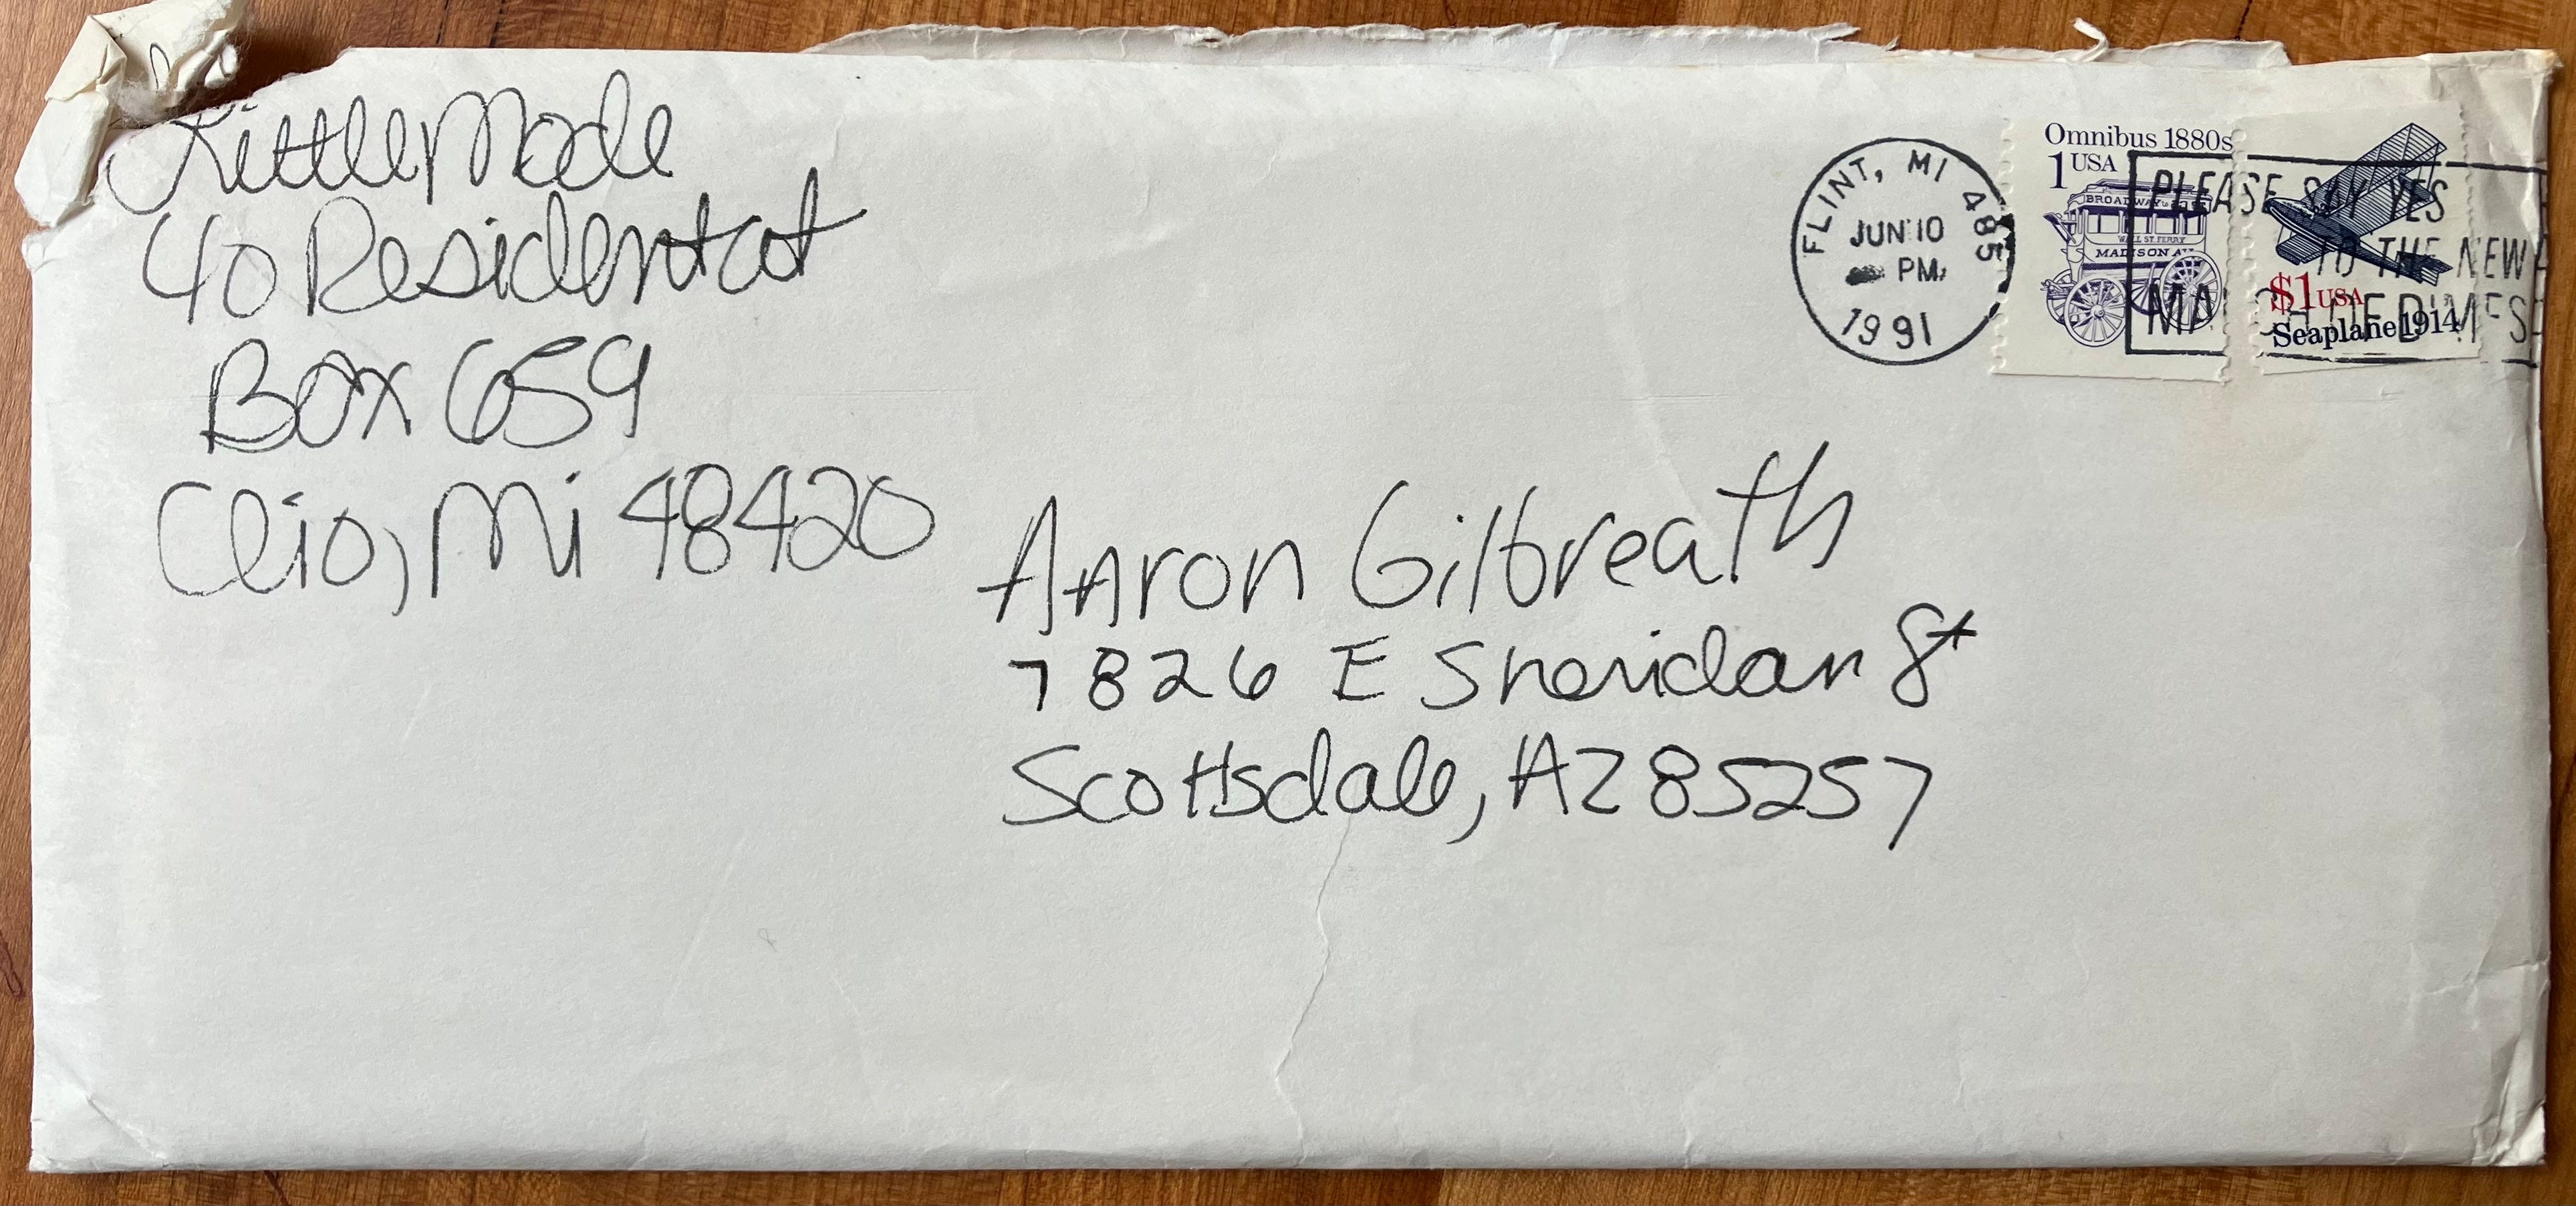 Little Made
40 Resident at
Box 659
Clio, Mi 48420
FLINT, MI 485
JUN 10
PM
1991
Omnibus 1880s
1 USA
BROADWAY
WALL ST. FERRY
MADISON AV
$1 USA
Seaplane 1914
PLEASE SAY YES
TO THE NEW
MARCH OF DIMES
Aaron Gilbreath
7826 E Sheridan St
Scottsdale, AZ 85257